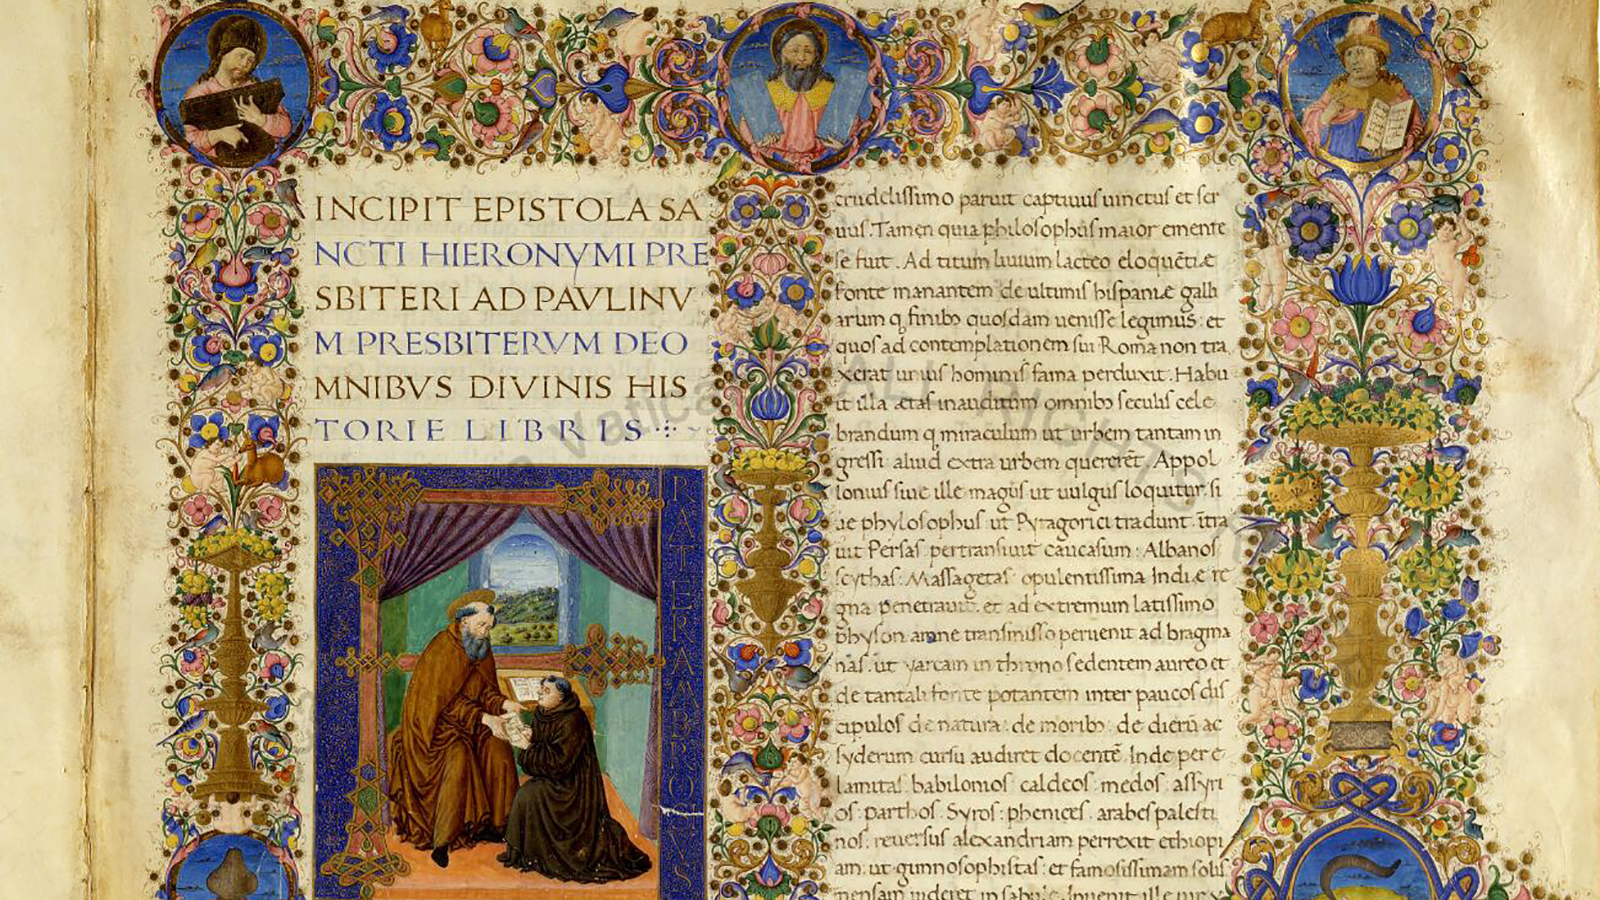 INCIPIT EPISTOLA SA
NCTI HIERONYMI PRE
SBITERI AD PAVLINV
M PRESBITERVM DEO
MNIBVS DIVINIS HIS
TORIE LIBRIS
RATERAMBROSIVS
crudelissimo paruit captiuus uinctus et ser
uus. Tamen quia philosophus maior emente
se fuit. Ad titum liuium lacteo eloquētiæ
fonte manantem de ultimis hispaniæ galli
arum q finibꝫ quosdam uenisse legimus: et
quos ad contemplationem sui Roma non tra
xerat unius hominis fama perduxit. Habu
it illa ætas inauditum omnibꝫ seculis cele
brandum q miraculum ut urbem tantam in
gressi aliud extra urbem quererēt. Appol
lonius siue ille magus ut uulgus loquitur. si
ue phylosophus ut Pytagorici tradunt. ītra
uit Persas pertransiuit caucasum: Albanos
scythas. Massagetas opulentissima Indiæ re
gna penetrauit. et ad extremum latissimo
physon amne transmisso peruenit ad bragma
nas. ut yarcam in throno sedentem aureo et
de tantali fonte potantem inter paucos dis
cipulos de natura: de moribꝫ: de dierū ac
syderum cursu audiret docentē. Inde per e
lamitas babilonios caldeos medos: assyri
os: Parthos. Syros: phenices. arabes palesti
nos: reuersus alexandriam perrexit ethiopi
am: ut gumnosophistas: et famosissimam solis
mensam uideret in sabulo. Inuenit ille uir